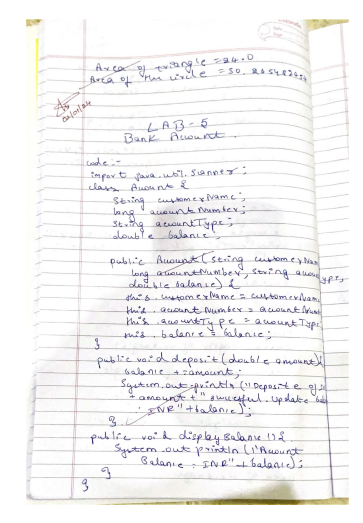 Area of triangle = 24.0
Area of the circle = 50.26548245
LAB-5
Bank Account.
code :-
import java.util.Scanner;
class Account {
String customerName;
long accountNumber;
String accountType;
double balance;
public Account (String customerNam
long accountNumber, String accountType,
double balance) {
this.customerName = customerName
this.accountNumber = accountNum
this.accountType = accountType
this.balance = balance;
}
public void deposit (double amount) {
balance += amount;
System.out.println ("Deposite of I
+ amount + " succefful. Update bal
: INR" + balance);
}
public void displayBalance () {
System.out.println ("Account
Balance : INR" + balance);
}
}